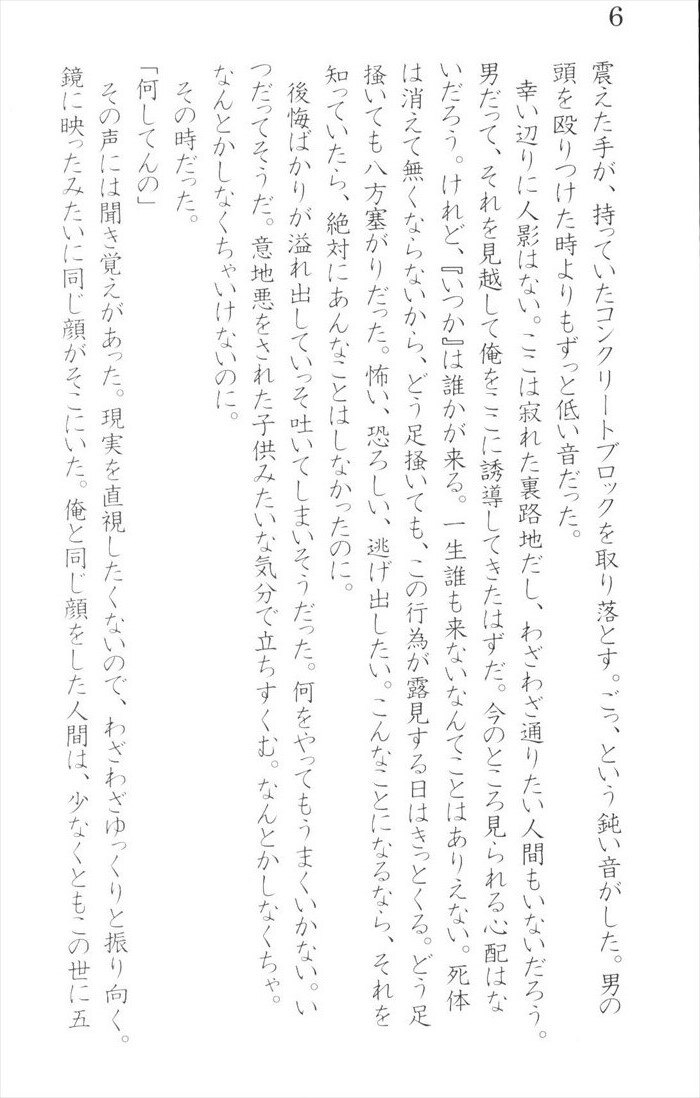 6
震えた手が、持っていたコンクリートブロックを取り落とす。ごっ、という鈍い音がした。男の
頭を殴りつけた時よりもずっと低い音だった。
幸い辺りに人影はない。ここは寂れた裏路地だし、わざわざ通りたい人間もいないだろう。
男だって、それを見越して俺をここに誘導してきたはずだ。今のところ見られる心配はな
いだろう。けれど、『いつか』は誰かが来る。一生誰も来ないなんてことはありえない。死体
は消えて無くならないから、どう足掻いても、この行為が露見する日はきっとくる。どう足
掻いても八方塞がりだった。怖い、恐ろしい、逃げ出したい。こんなことになるなら、それを
知っていたら、絶対にあんなことはしなかったのに。
後悔ばかりが溢れ出していっそ吐いてしまいそうだった。何をやってもうまくいかない。い
つだってそうだ。意地悪をされた子供みたいな気分で立ちすくむ。なんとかしなくちゃ。
なんとかしなくちゃいけないのに。
その時だった。
「何してんの」
その声には聞き覚えがあった。現実を直視したくないので、わざわざゆっくりと振り向く。
鏡に映ったみたいに同じ顔がそこにいた。俺と同じ顔をした人間は、少なくともこの世に五